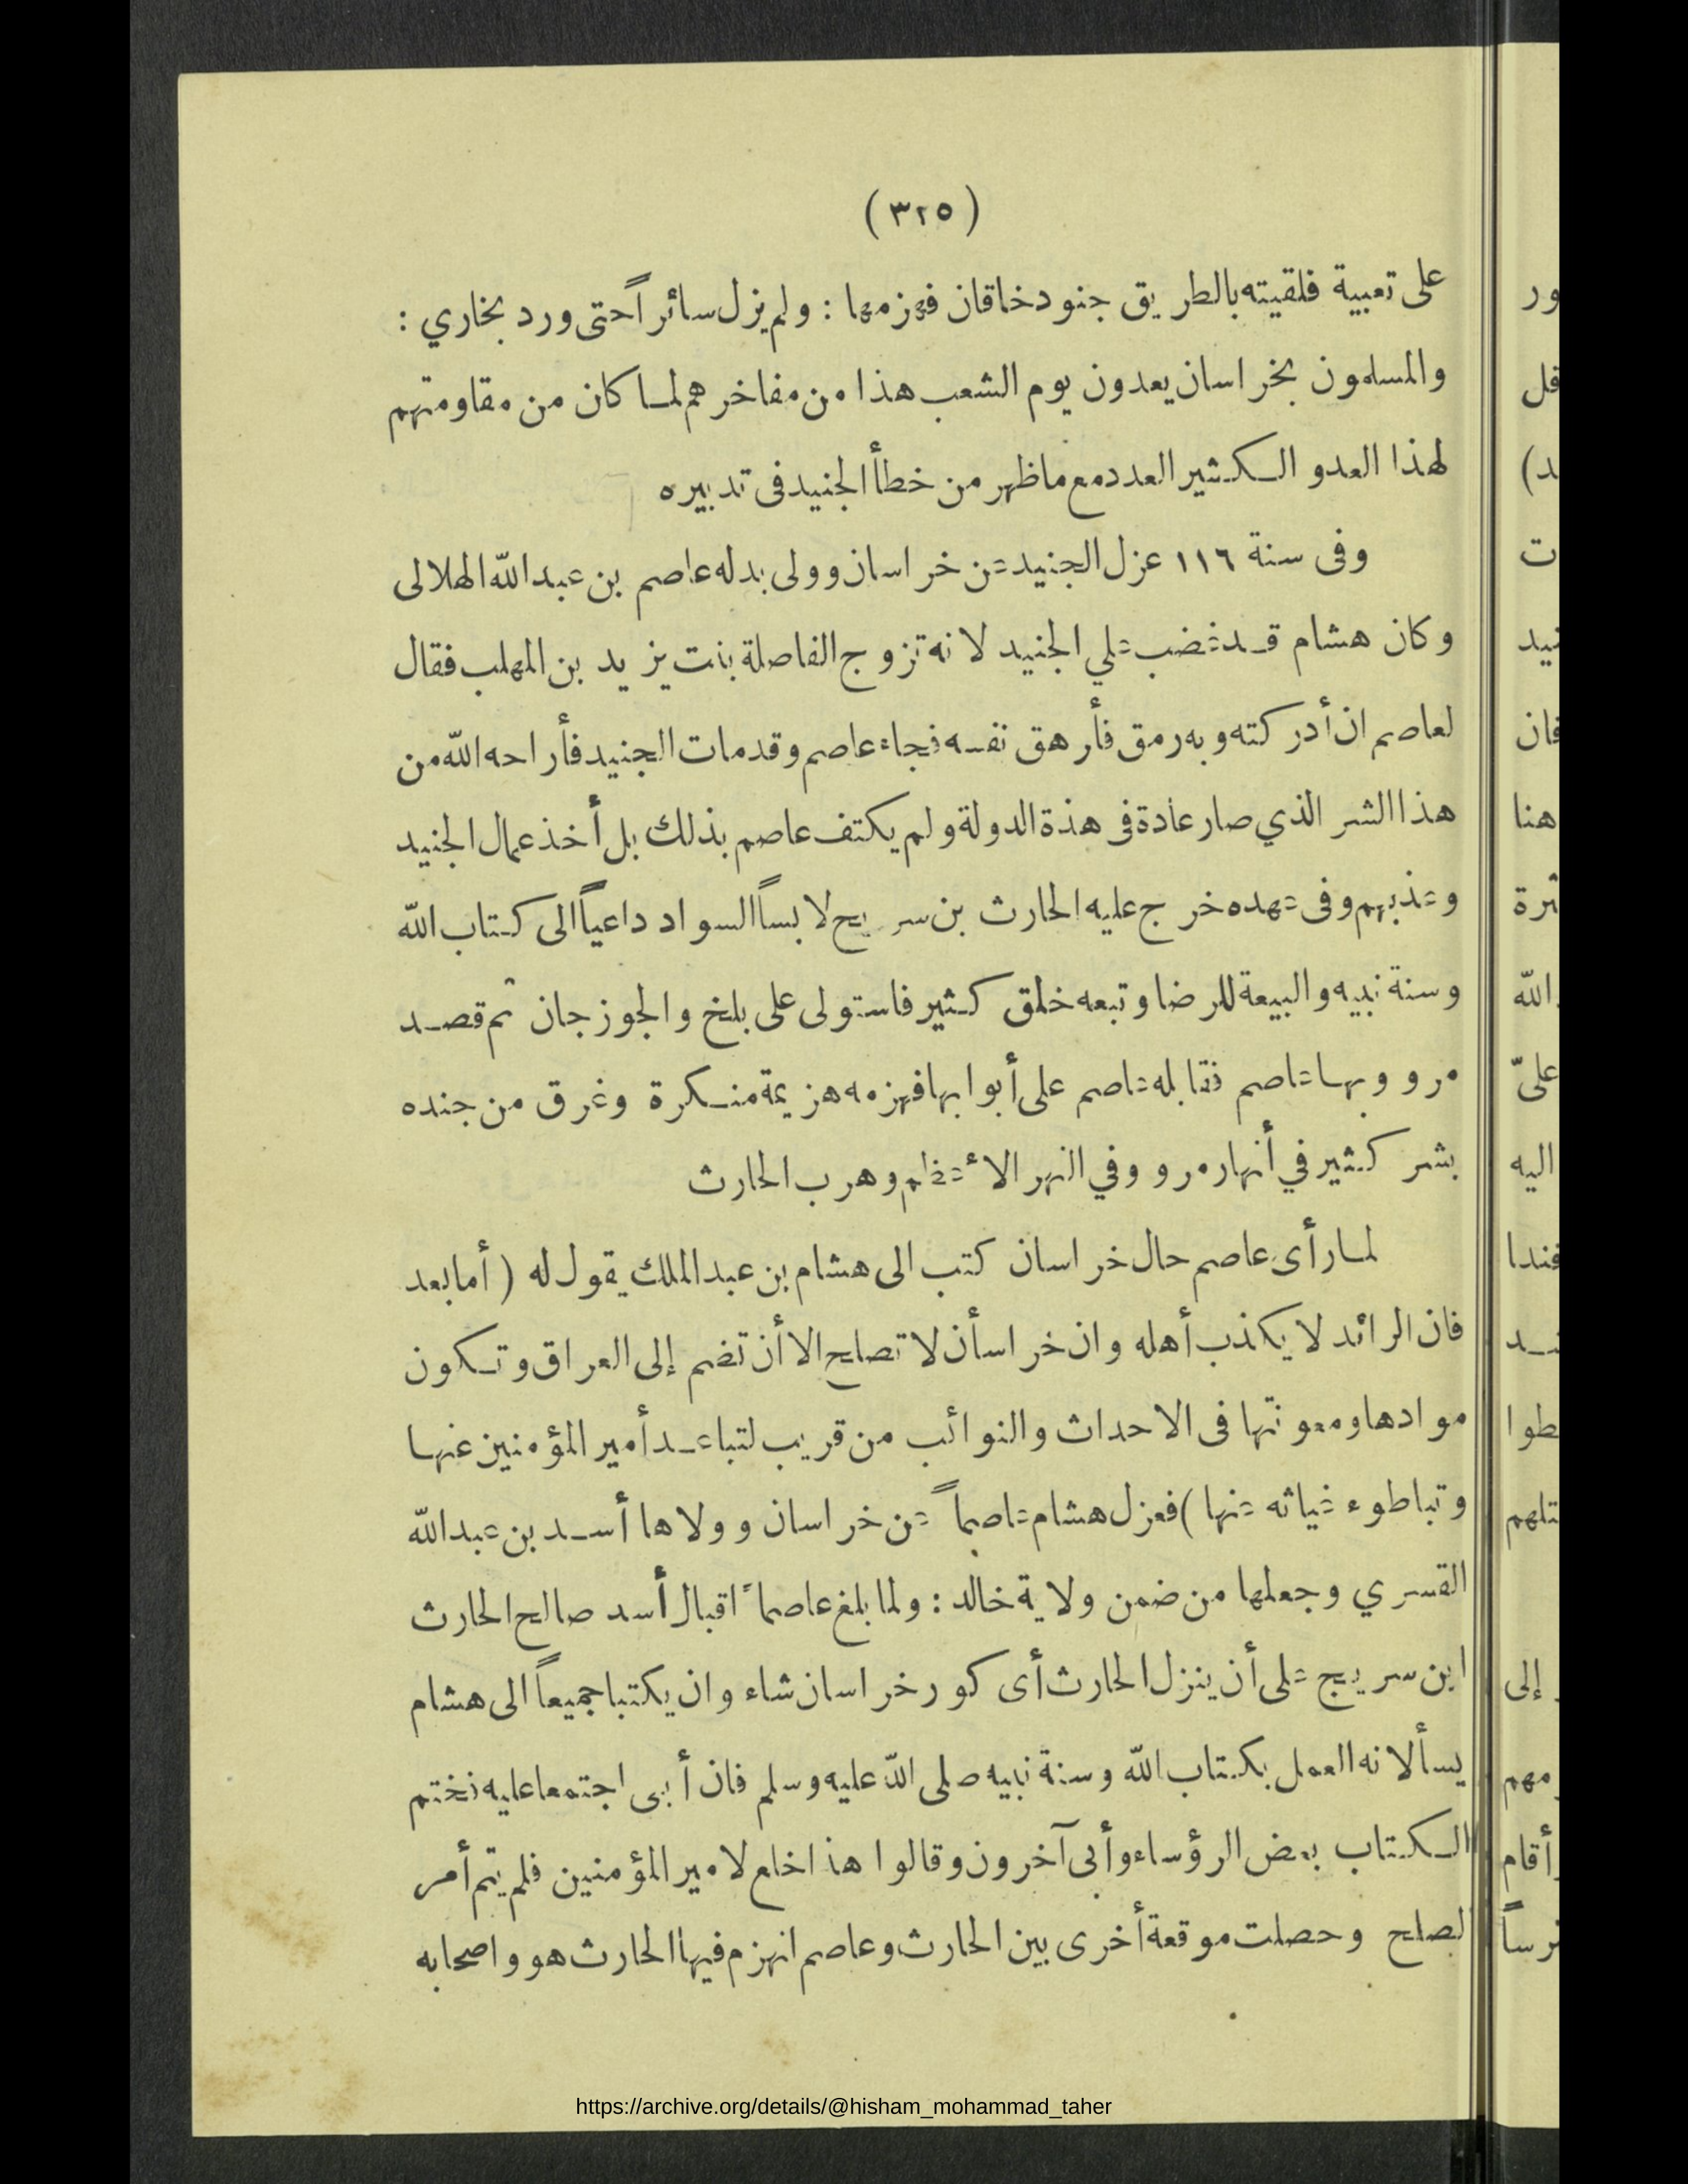 (٣٢٥)
على تعبية فلقيته بالطريق جنود خاقان فهزمها : ولم يزل سائراً حتى ورد بخاري :
والمسلمون بخراسان يعدون يوم الشعب هذا من مفاخرهم لما كان من مقاومتهم
لهذا العدو الكثير العدد مع ماظهر من خطأ الجنيد فى تدبيره
وفى سنة ١١٦ عزل الجنيد عن خراسان وولى بدله عاصم بن عبد الله الهلالى
وكان هشام قد غضب علي الجنيد لانه تزوج الفاصلة بنت يزيد بن المهلب فقال
لعاصم ان أدركته وبه رمق فأرهق نفسه فجاء عاصم وقدمات الجنيد فأراحه الله من
هذا الشر الذي صار عادة فى هذة الدولة ولم يكتف عاصم بذلك بل أخذ عمال الجنيد
وعذبهم وفى عهده خرج عليه الحارث بن سريج لابساً السواد داعياً الى كتاب الله
وسنة نبيه والبيعة للرضا وتبعه خلق كثير فاستولى على بلخ والجوزجان ثم قصد
مرو وبها عاصم فقابله عاصم على أبوابها فهزمه هزيمة منكرة وغرق من جنده
بشر كثير في أنهار مرو وفي النهر الأعظم وهرب الحارث
لما رأى عاصم حال خراسان كتب الى هشام بن عبد الملك يقول له ( أما بعد
فان الرائد لا يكذب أهله وان خراسأن لا تصلح الا أن تضم إلى العراق وتكون
موادها ومعونتها فى الاحداث والنوائب من قريب لتباعد أمير المؤمنين عنها
وتباطوء غياثه عنها ) فعزل هشام عاصماً عن خراسان وولاها أسد بن عبد الله
القسري وجعلها من ضمن ولاية خالد : ولما بلغ عاصماً اقبال أسد صالح الحارث
ابن سريج على أن ينزل الحارث أى كور خراسان شاء وان يكتبا جميعاً الى هشام
يسألانه العمل بكتاب الله وسنة نبيه صلى الله عليه وسلم فان أبى اجتمعا عليه فختم
الكتاب بعض الرؤساء وأبى آخرون وقالوا هذا خلع لامير المؤمنين فلم يتم أمر
لصلح وحصلت موقعة أخرى بين الحارث وعاصم انهزم فيها الحارث هو واصحابه
https://archive.org/details/@hisham_mohammad_taher